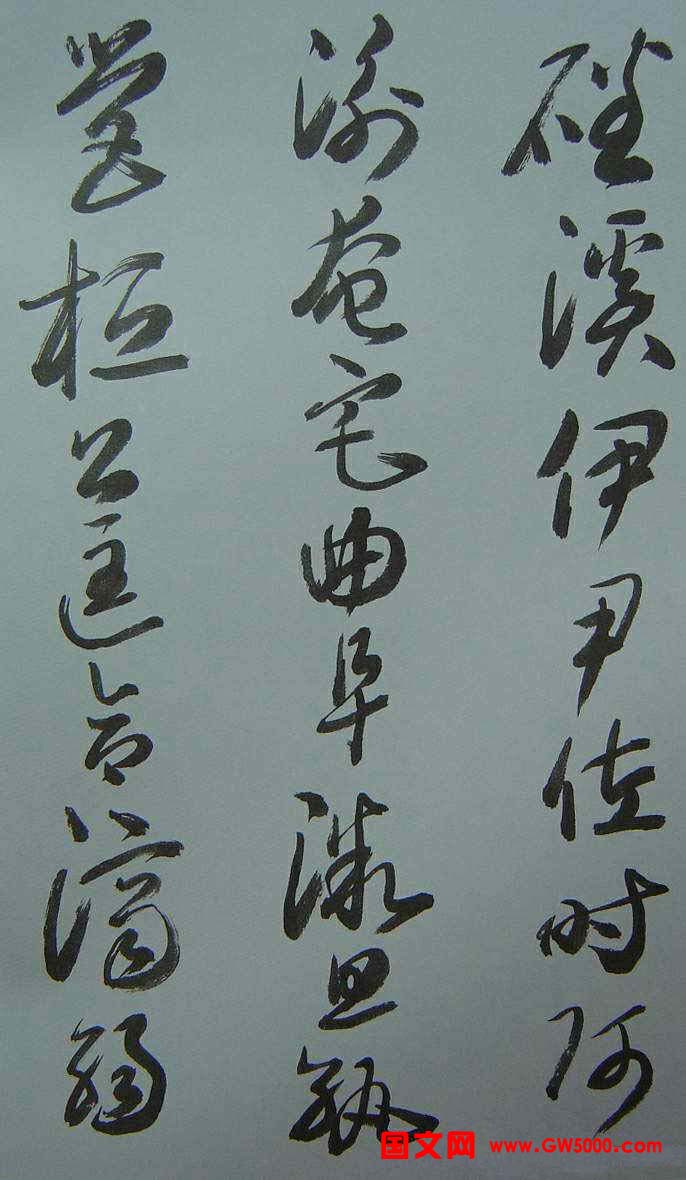 磻溪伊尹佐时阿
衡奄宅曲阜微旦孰
营桓公匡合济弱
国文网 www.GW5000.com